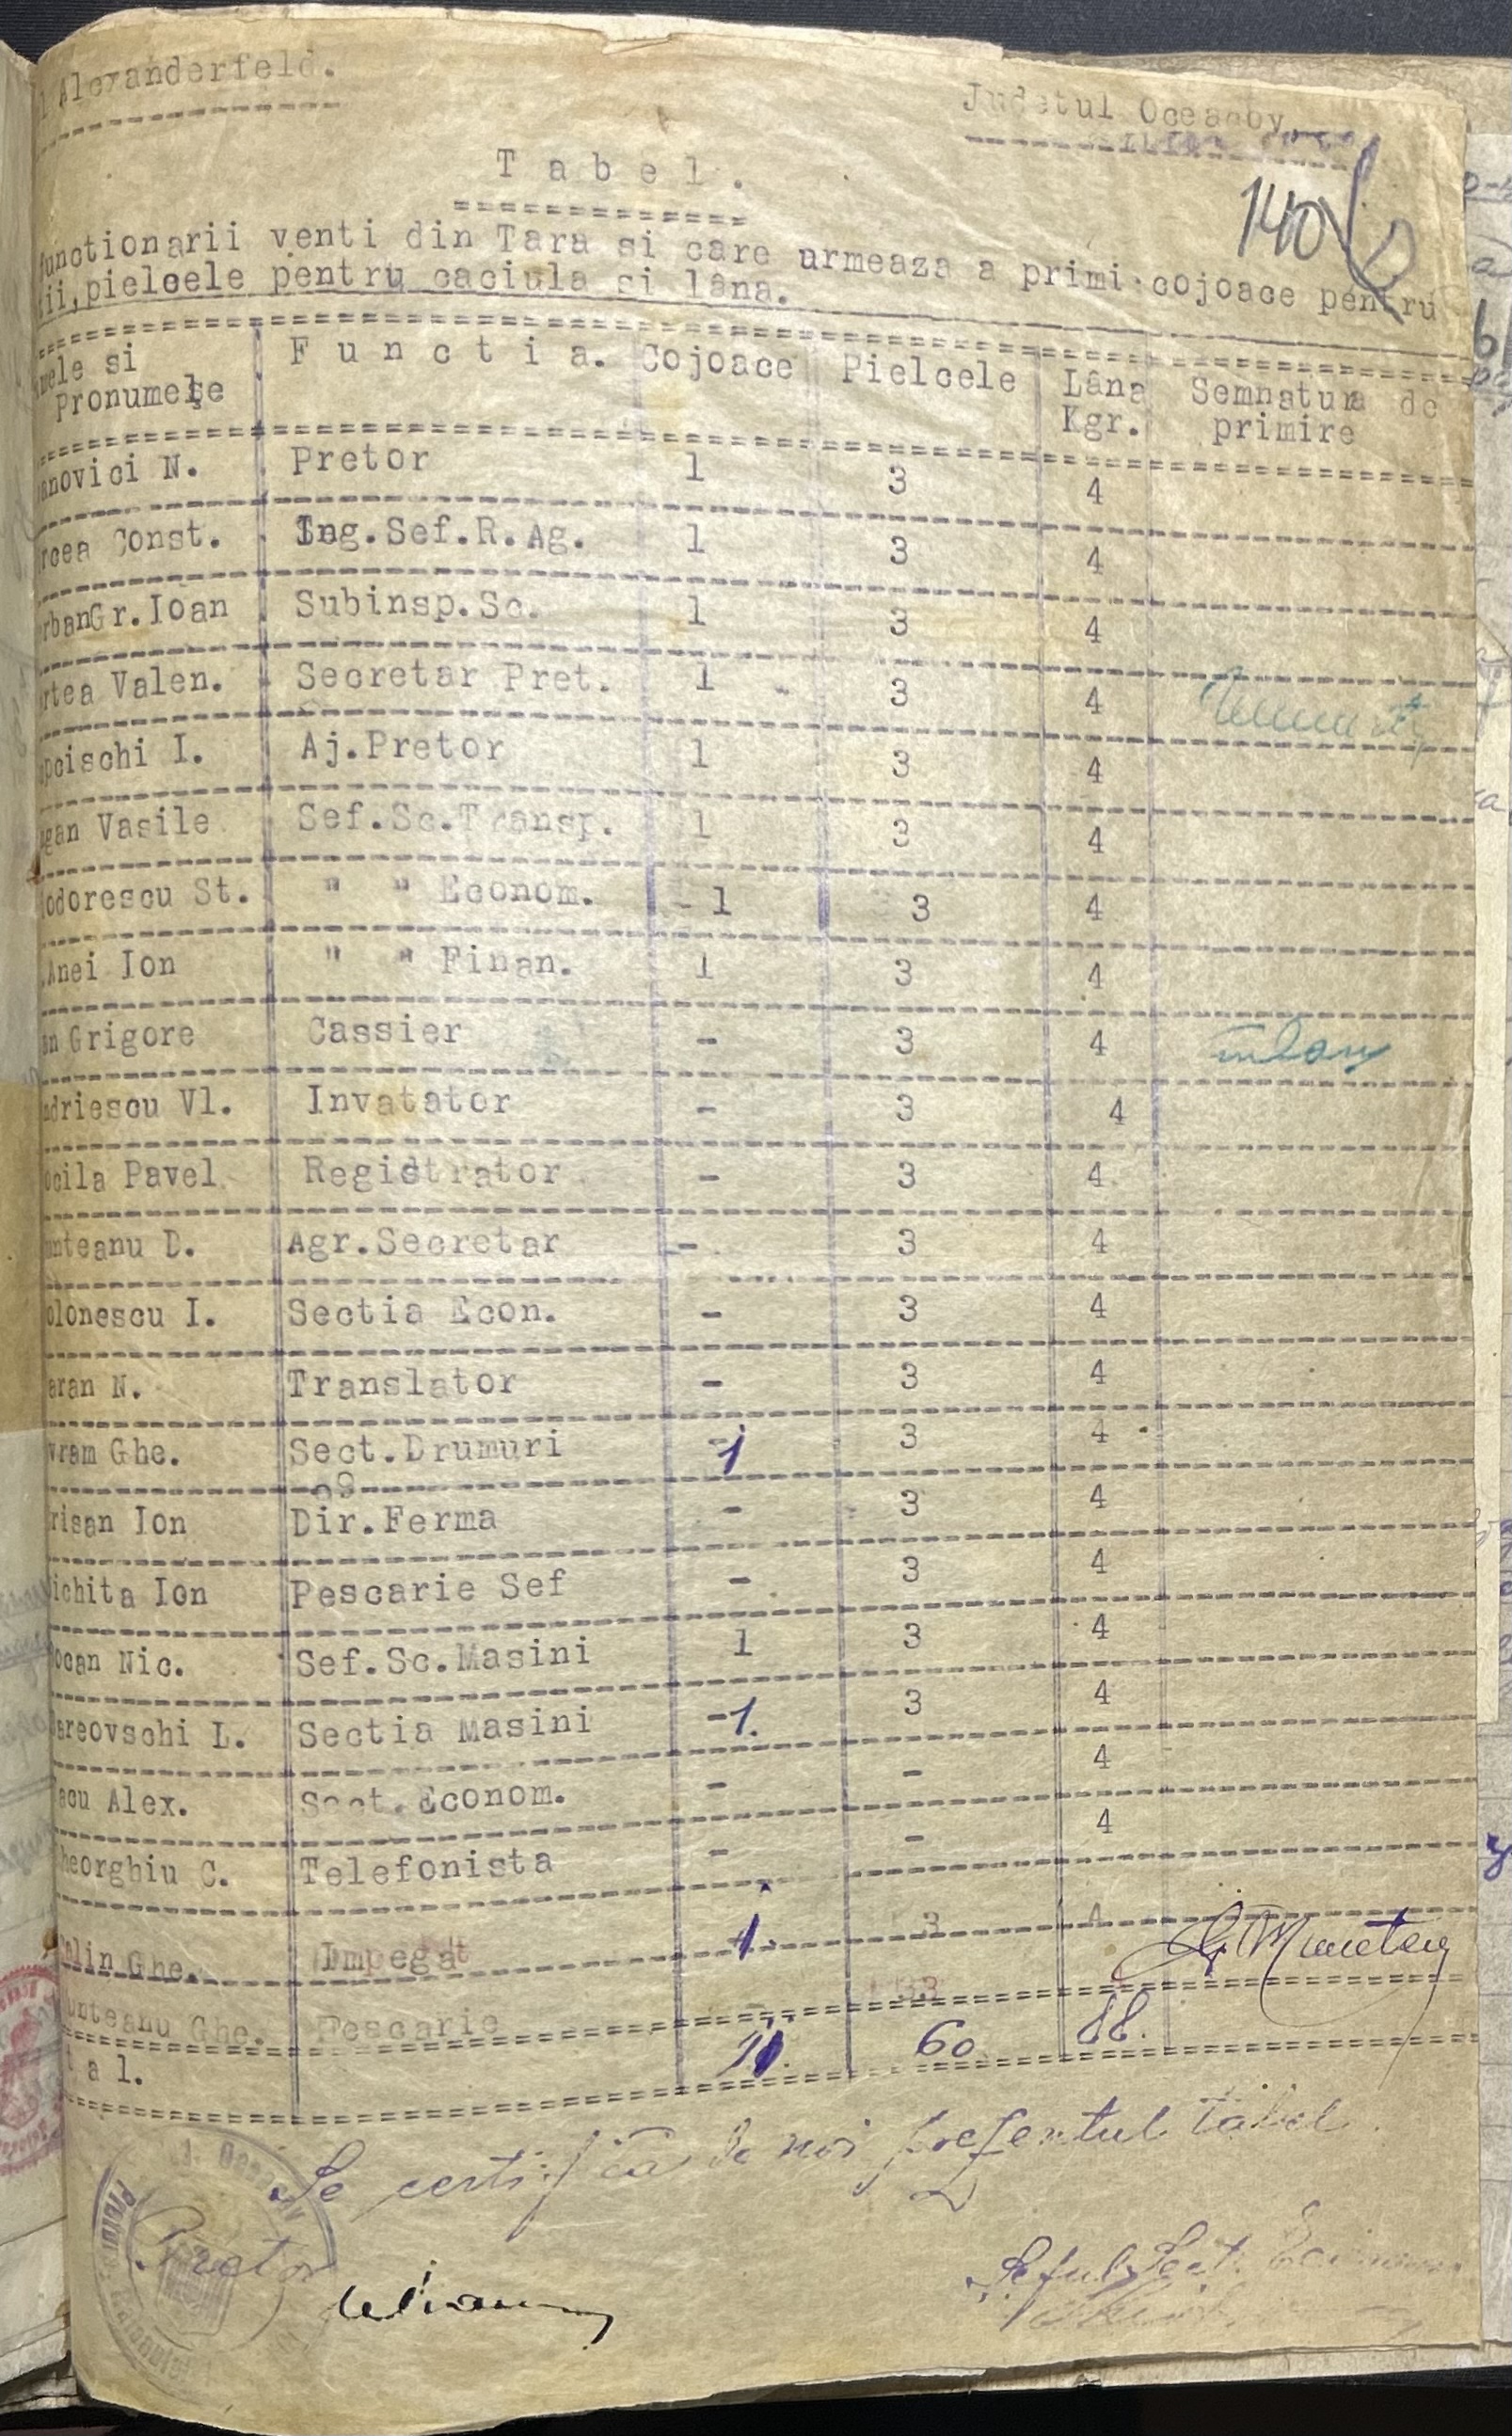 Alexanderfeld.
Judetul Oceacov
140
Tabel.
functionarii venti din Tara si care urmeaza a primi cojoace pentru
ii, pielcele pentru caciula si lâna.
mele si Functia. Cojoace Pielcele Lâna Semnatura de
Pronumele Kgr. primire
anovici N. Pretor 1 3 4
rcea Const. Ing.Sef.R.Ag. 1 3 4
rbanGr.Ioan Subinsp.Sc. 1 3 4
rtea Valen. Secretar Pret. 1 3 4
pcischi I. Aj.Pretor 1 3 4
gan Vasile Sef.Sc.Transp. 1 3 4
odorescu St. " " Econom. 1 3 4
.Anei Ion " " Finan. 1 3 4
an Grigore Cassier - 3 4
ndriescu Vl. Invatator - 3 4
ocila Pavel Registrator - 3 4
unteanu D. Agr.Secretar - 3 4
olonescu I. Sectia Econ. - 3 4
aran N. Translator - 3 4
vram Ghe. Sect.Drumuri 1 3 4
risan Ion Dir.Ferma - 3 4
ichita Ion Pescarie Sef - 3 4
ocan Nic. Sef.Sc.Masini 1 3 4
areovschi L. Sectia Masini -1. 3 4
acu Alex. Sect.Econom. - - 4
heorghiu C. Telefonista - - 4
alin Ghe. Impegat 1. 3 4 G. Munteanu
unteanu Ghe. Pescarie - 33
tal. 11. 60 88.
Se certifică de noi prezentul tabel.
Pretor
Seful Sect.